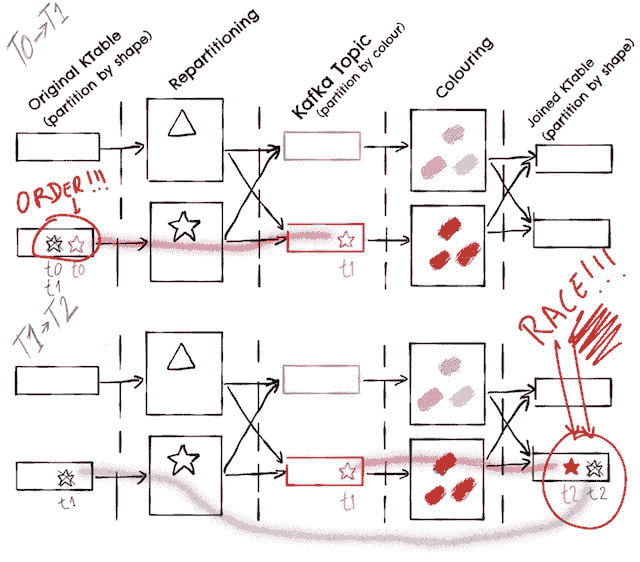 T0→T1
Original KTable
(partition by shape)
Repartitioning
Kafka Topic
(partition by colour)
Colouring
Joined KTable
(partition by shape)
ORDER!!!
t0 t0
t1
t1
T1→T2
RACE!!!
t1
t1
t2 t2